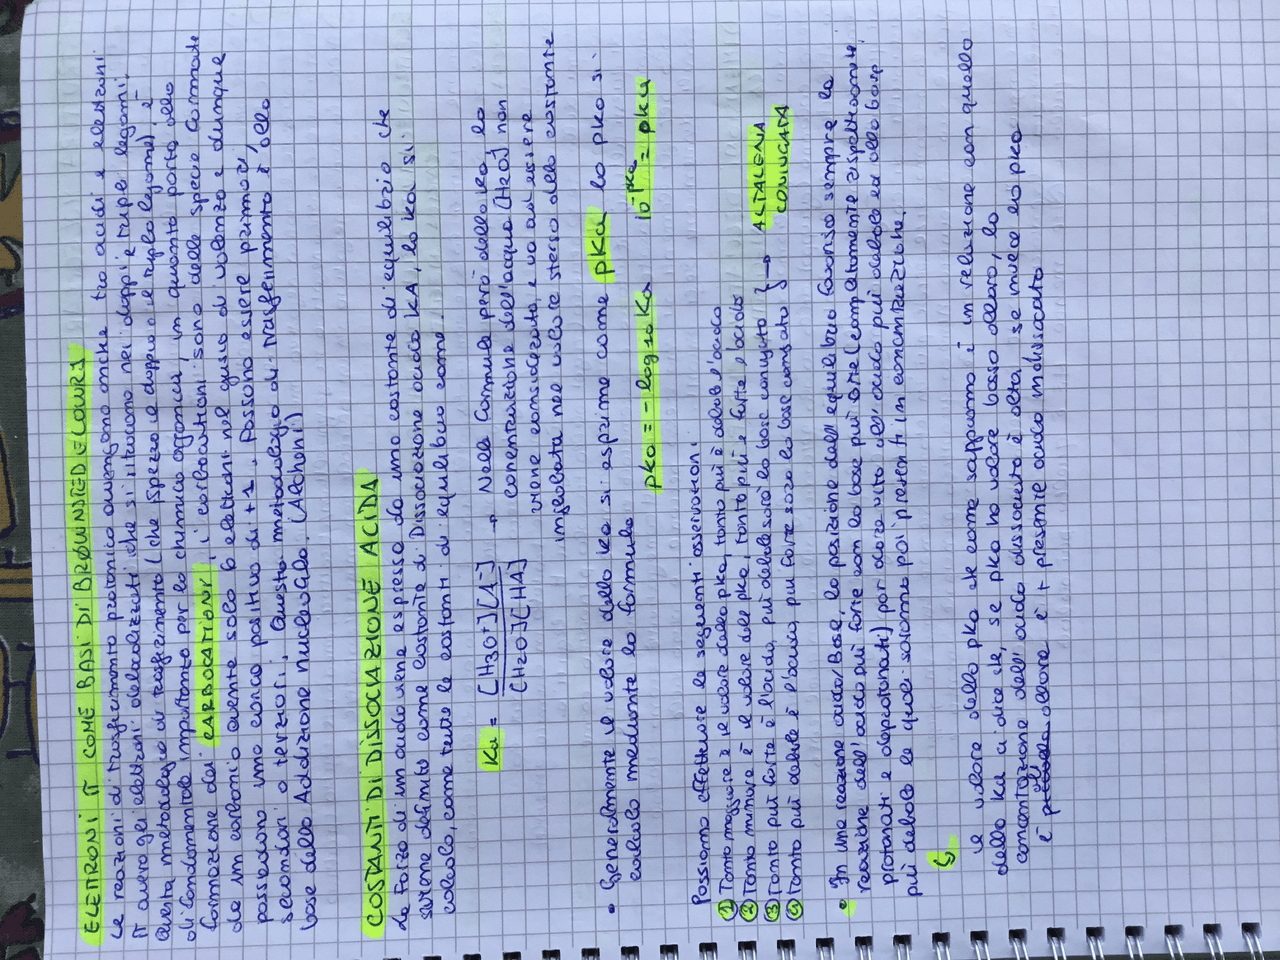 ELETTRONI π COME BASI DI BRØWNSTED E LOURY
Le reazioni di trasferimento protonico avvengono anche tra acidi e elettroni
π ovvero gli elettroni delocalizzati che si situano nei doppi e tripli legami.
Questa metodologia di trasferimento (che spezza il doppio o il triplo legame), è
di fondamentale importanza per la chimica organica, in quanto porta alla
formazione dei CARBOCATIONI, i carbocationi sono delle specie formate
da un carbonio avente solo 6 elettroni nel guscio di valenza e dunque
possiedono una carica positiva di +1. Possono essere primari,
secondari o terziari; Questa metodologia di trasferimento è alla
base della Addizione nucleofila. (Alcheni)
COSTANTI DI DISSOCIAZIONE ACIDA
La forza di un acido viene espressa da una costante di equilibrio che
viene definita come costante di Dissociazione acida KA, la Ka si
calcola, come tutte le costanti di equilibrio come.
Ka = [H3O+][A-] / [H2O][HA] → Nella formula però della Ka la
concentrazione dell'acqua [H2O] non
viene considerata, e va ad essere
inglobata nel valore stesso della costante
• Generalmente il valore della Ka si esprime come pKa la pKa si
calcola mediante la formula
pKa = -log10Ka 10^-pKa = pKa
Possiamo effettuare le seguenti osservazioni:
① Tanto maggiore è il valore della pKa, tanto più è debole l'acido
② Tanto minore è il valore del pKa, tanto più è forte l'acido
③ Tanto più forte è l'acido, più debole sarà la base coniugata } → ALTALENA
④ Tanto più debole è l'acido, più forte sarà la base coniugata CONIUGATA
• In una reazione acido/Base, la posizione dell'equilibrio favorisce sempre la
reazione dell'acido più forte con la base più forte (completamente rispettivamente
protonati e deprotonati) per dare vita all'acido più debole ed alla base
più debole le quali saranno poi presenti in concentrazione.
↳
il valore della pKa che come sappiamo è in relazione con quello
della Ka ci dice che, se pKa ha valore basso allora, la
concentrazione dell'acido dissociato è alta, se invece la pKa
è alta allora è + presente acido indissociato